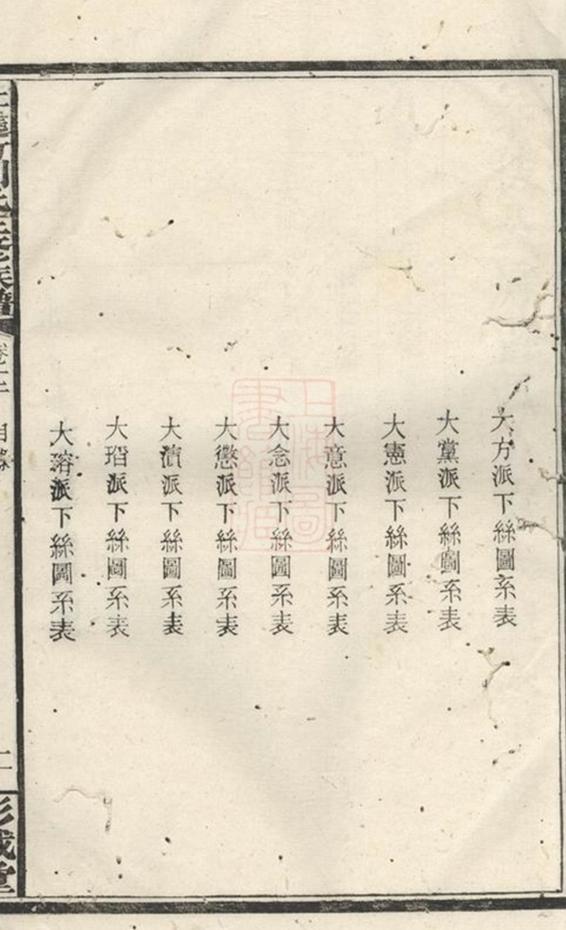 大方派下絲圖系表
大黨派下絲圖系表
大憲派下絲圖系表
大意派下絲圖系表
大念派下絲圖系表
大懲派下絲圖系表
大濱派下絲圖系表
大瑫派下絲圖系表
大瑢派下絲圖系表
上海圖書館藏
族譜
目錄
二
彭城堂